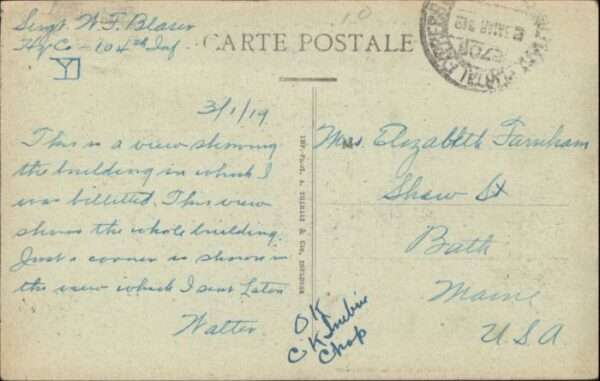 Sergt. W. F. Blaser
Hq Co - 104th Inf
Y
CARTE POSTALE
3/1/19
This is a view showing
the building in which I
was billetted. This view
shows the whole building.
Just a corner is shown in
the view which I sent Later
Walter.
Mrs. Elizabeth Farnham
Shaw St
Bath
Maine
U.S.A.
OK
Chap